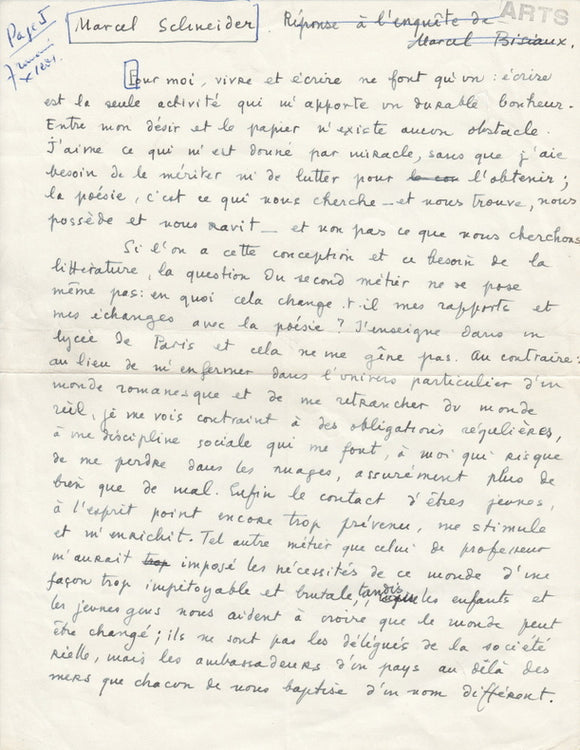 ARTS
Page 5
Marcel Schneider
Réponse à l'enquête de
Marcel Bisiaux.
Pour moi, vivre et écrire ne font qu'un : écrire
est la seule activité qui m'apporte un durable bonheur.
Entre mon désir et le papier n'existe aucun obstacle.
J'aime ce qui m'est donné par miracle, sans que j'aie
besoin de le mériter ni de lutter pour l'obtenir ;
la poésie, c'est ce qui nous cherche — et nous trouve, nous
possède et nous ravit — et non pas ce que nous cherchons
Si l'on a cette conception et ce besoin de la
littérature, la question du second métier ne se pose
même pas : en quoi cela change-t-il mes rapports et
mes échanges avec la poésie ? J'enseigne dans un
lycée de Paris et cela ne me gêne pas. Au contraire :
au lieu de m'enfermer dans l'univers particulier d'un
monde romanesque et de me retrancher du monde
réel, je me vois contraint à des obligations régulières,
à une discipline sociale qui me font, à moi qui risque
de me perdre dans les nuages, assurément plus de
bien que de mal. Enfin le contact d'êtres jeunes,
à l'esprit point encore trop prévenu, me stimule
et m'enrichit. Tel autre métier que celui de professeur
m'aurait trop imposé les nécessités de ce monde d'une
façon trop impitoyable et brutale, tandis que les enfants et
les jeunes gens nous aident à croire que le monde peut
être changé ; ils ne sont pas les délégués de la société
réelle, mais les ambassadeurs d'un pays au delà des
mers que chacun de nous baptise d'un nom différent.